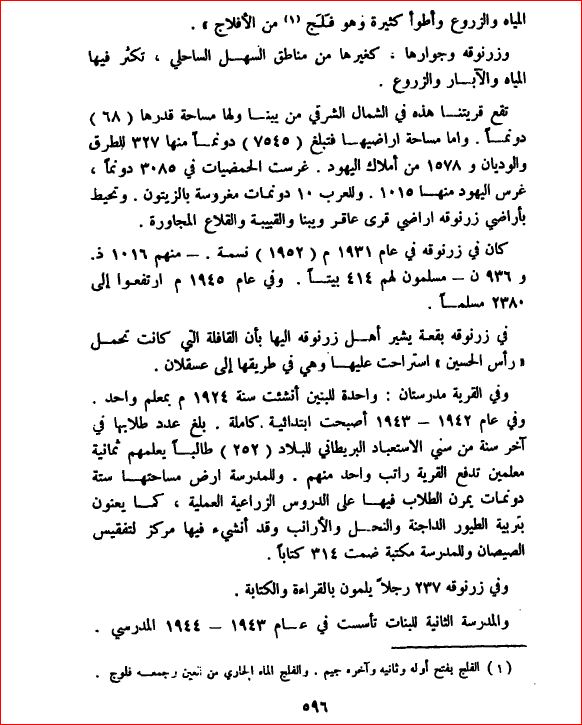 المياه والزروع وأطوأ كثيرة وهو فَلَج (١) من الأفلاج » .
وزرنوقه وجوارها ، كغيرها من مناطق السهل الساحلي ، تكثر فيها
المياه والآبار والزروع .
تقع قريتنا هذه في الشمال الشرقي من يبنا ولها مساحة قدرها ( ٦٨ )
دونماً . واما مساحة اراضيها فتبلغ ( ٧٥٤٥ ) دونماً منها ٣٢٧ للطرق
والوديان و ١٥٧٨ من أملاك اليهود . غرست الحمضيات في ٣٠٨٥ دونماً ،
غرس اليهود منها ١٠١٥ . وللعرب ١٠ دونمات مغروسة بالزيتون . وتحيط
بأراضي زرنوقه اراضي قرى عاقر ويبنا والقبيبة والقلاع المجاورة .
كان في زرنوقه في عام ١٩٣١ م ( ١٩٥٢ ) نسمة . – منهم ١٠١٦ ذ.
و ٩٣٦ ن – مسلمون لهم ٤١٤ بيتاً . وفي عام ١٩٤٥ م ارتفعوا إلى
٢٣٨٠ مسلماً .
في زرنوقه بقعة يشير أهل زرنوقه اليها بأن القافلة التي كانت تحمل
« رأس الحسين » استراحت عليها وهي في طريقها إلى عسقلان .
وفي القرية مدرستان : واحدة للبنين أنشئت سنة ١٩٢٤ م بمعلم واحد .
وفي عام ١٩٤٢ – ١٩٤٣ أصبحت ابتدائية كاملة . بلغ عدد طلابها في
آخر سنة من سني الاستعباد البريطاني للبلاد ( ٢٥٢ ) طالباً يعلمهم ثمانية
معلمين تدفع القرية راتب واحد منهم . وللمدرسة ارض مساحتها ستة
دونمات يمرن الطلاب فيها على الدروس الزراعية العملية ، كما يعنون
بتربية الطيور الداجنة والنحل والأرانب وقد أنشيء فيها مركز لتفقيس
الصيصان وللمدرسة مكتبة ضمت ٣١٤ كتاباً .
وفي زرنوقه ٢٣٧ رجلاً يلمون بالقراءة والكتابة .
والمدرسة الثانية للبنات تأسست في عام ١٩٤٣ – ١٩٤٤ المدرسي .
(١) الفلج بفتح أوله وثانيه وآخره جيم . والفلج الماء الجاري من العين وجمعه فلوج .
٥٩٦